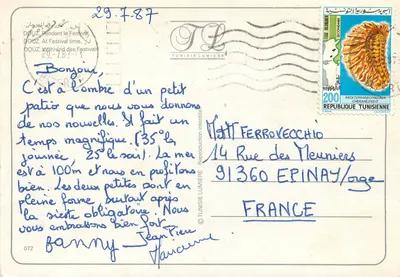 29.7.87
DOUZ. Pendant le Festival
DOUZ. At Festival time.
TUNIS LUMIERE
200
REPUBLIQUE TUNISIENNE
Bonjour,
C'est à l'ombre d'un petit
patio que nous vous donnons
de nos nouvelles. Il fait un
temps magnifique (35° la
journée, 25° le soir). La mer
est à 100m et nous en profitons
bien. Les deux petites sont en
pleine forme surtout après
la sieste obligatoire. Nous
vous embrassons bien fort
Fanny Jean Pierre
Marianne
© TUNISIE LUMIERE
072
M&M FERROVECCHIO
14 Rue des Meuniers
91360 EPINAY/orge
FRANCE